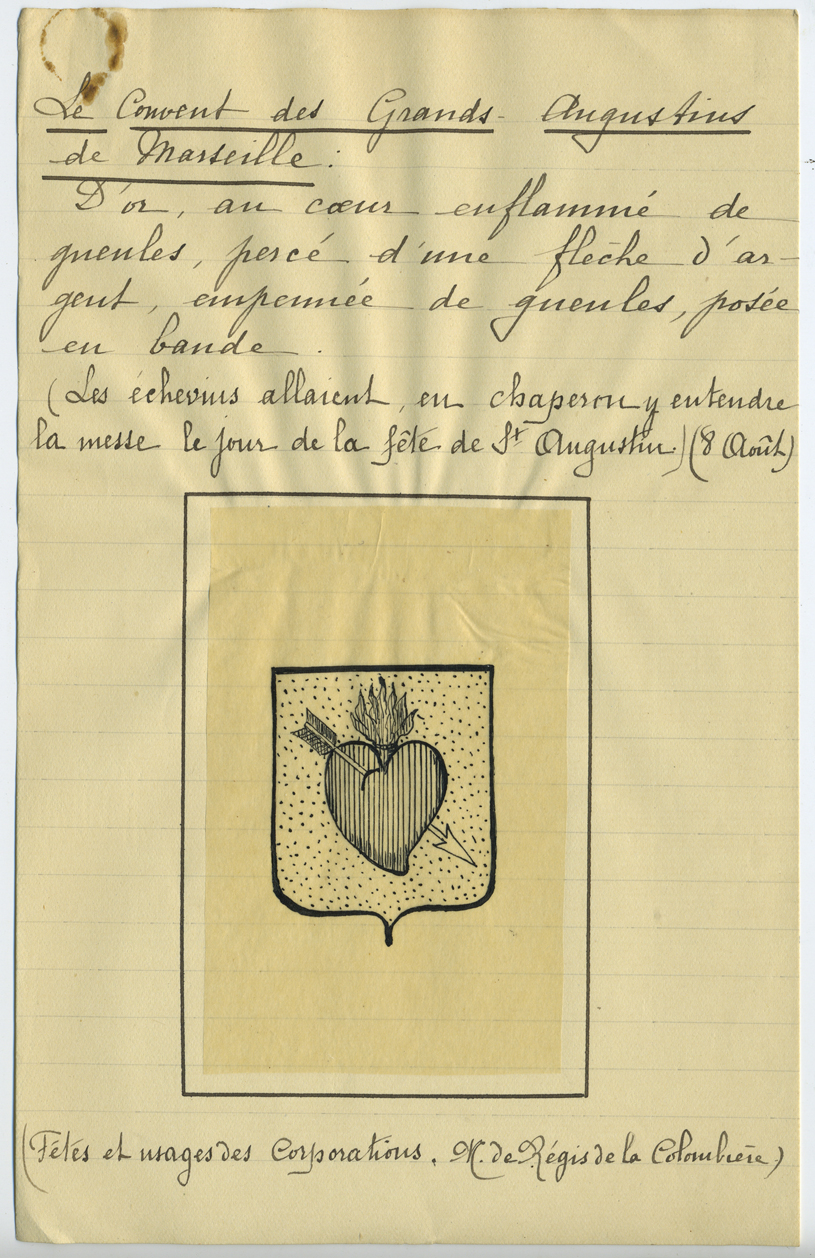 Le Couvent des Grands-Augustins
de Marseille :
D'or, au cœur enflammé de
gueules, percé d'une flèche d'ar-
gent, empennée de gueules, posée
en bande .
(Les échevins allaient, en chaperon y entendre
la messe le jour de la fête de St Augustin.) (8 Août)
(Fêtes et usages des Corporations. M. de Régis de la Colombière)